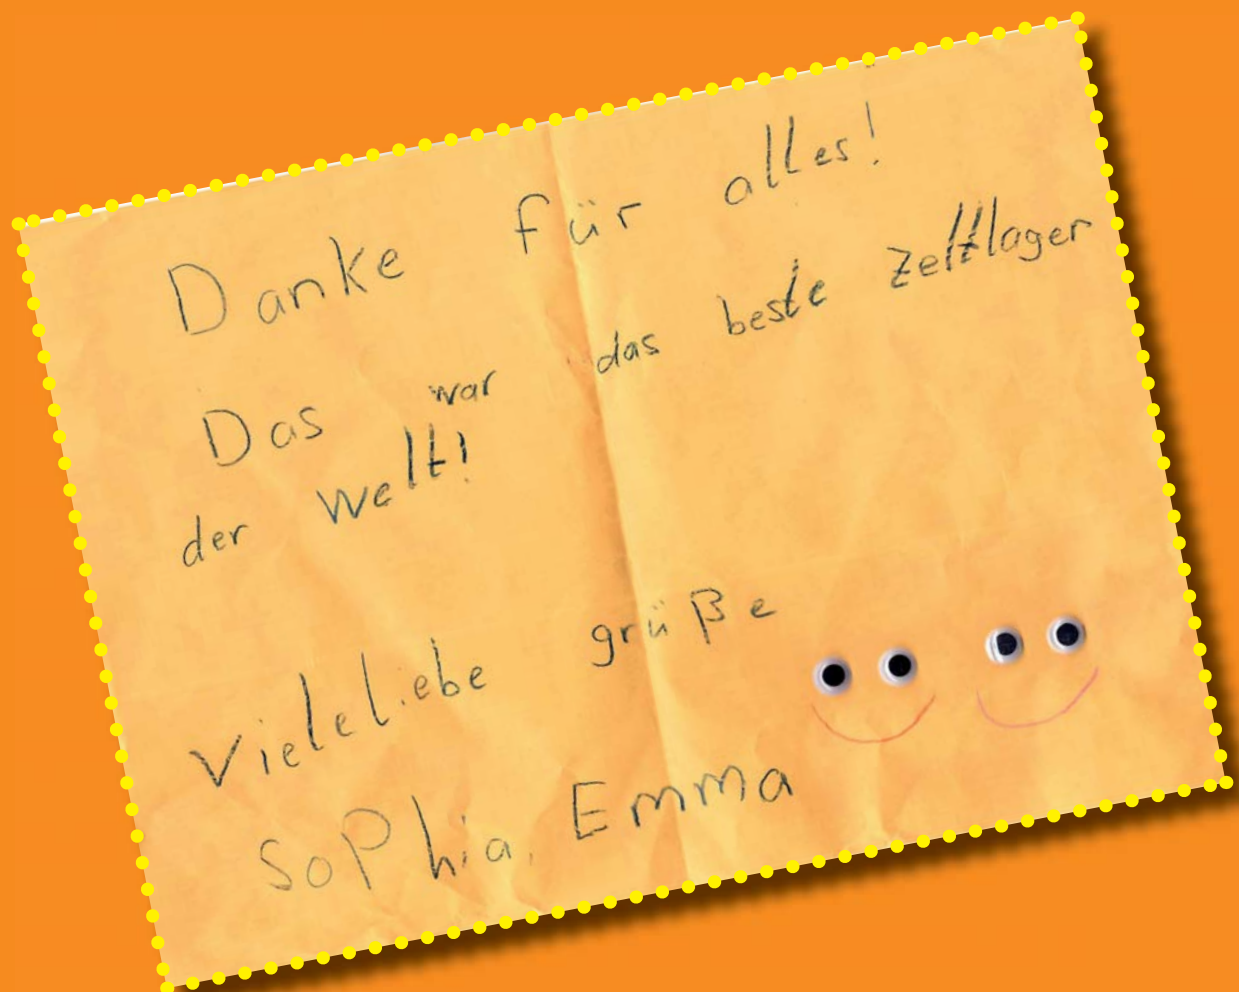 Danke für alles!
Das war das beste Zeltlager
der Welt!
Viele Liebe grüße
Sophia, Emma